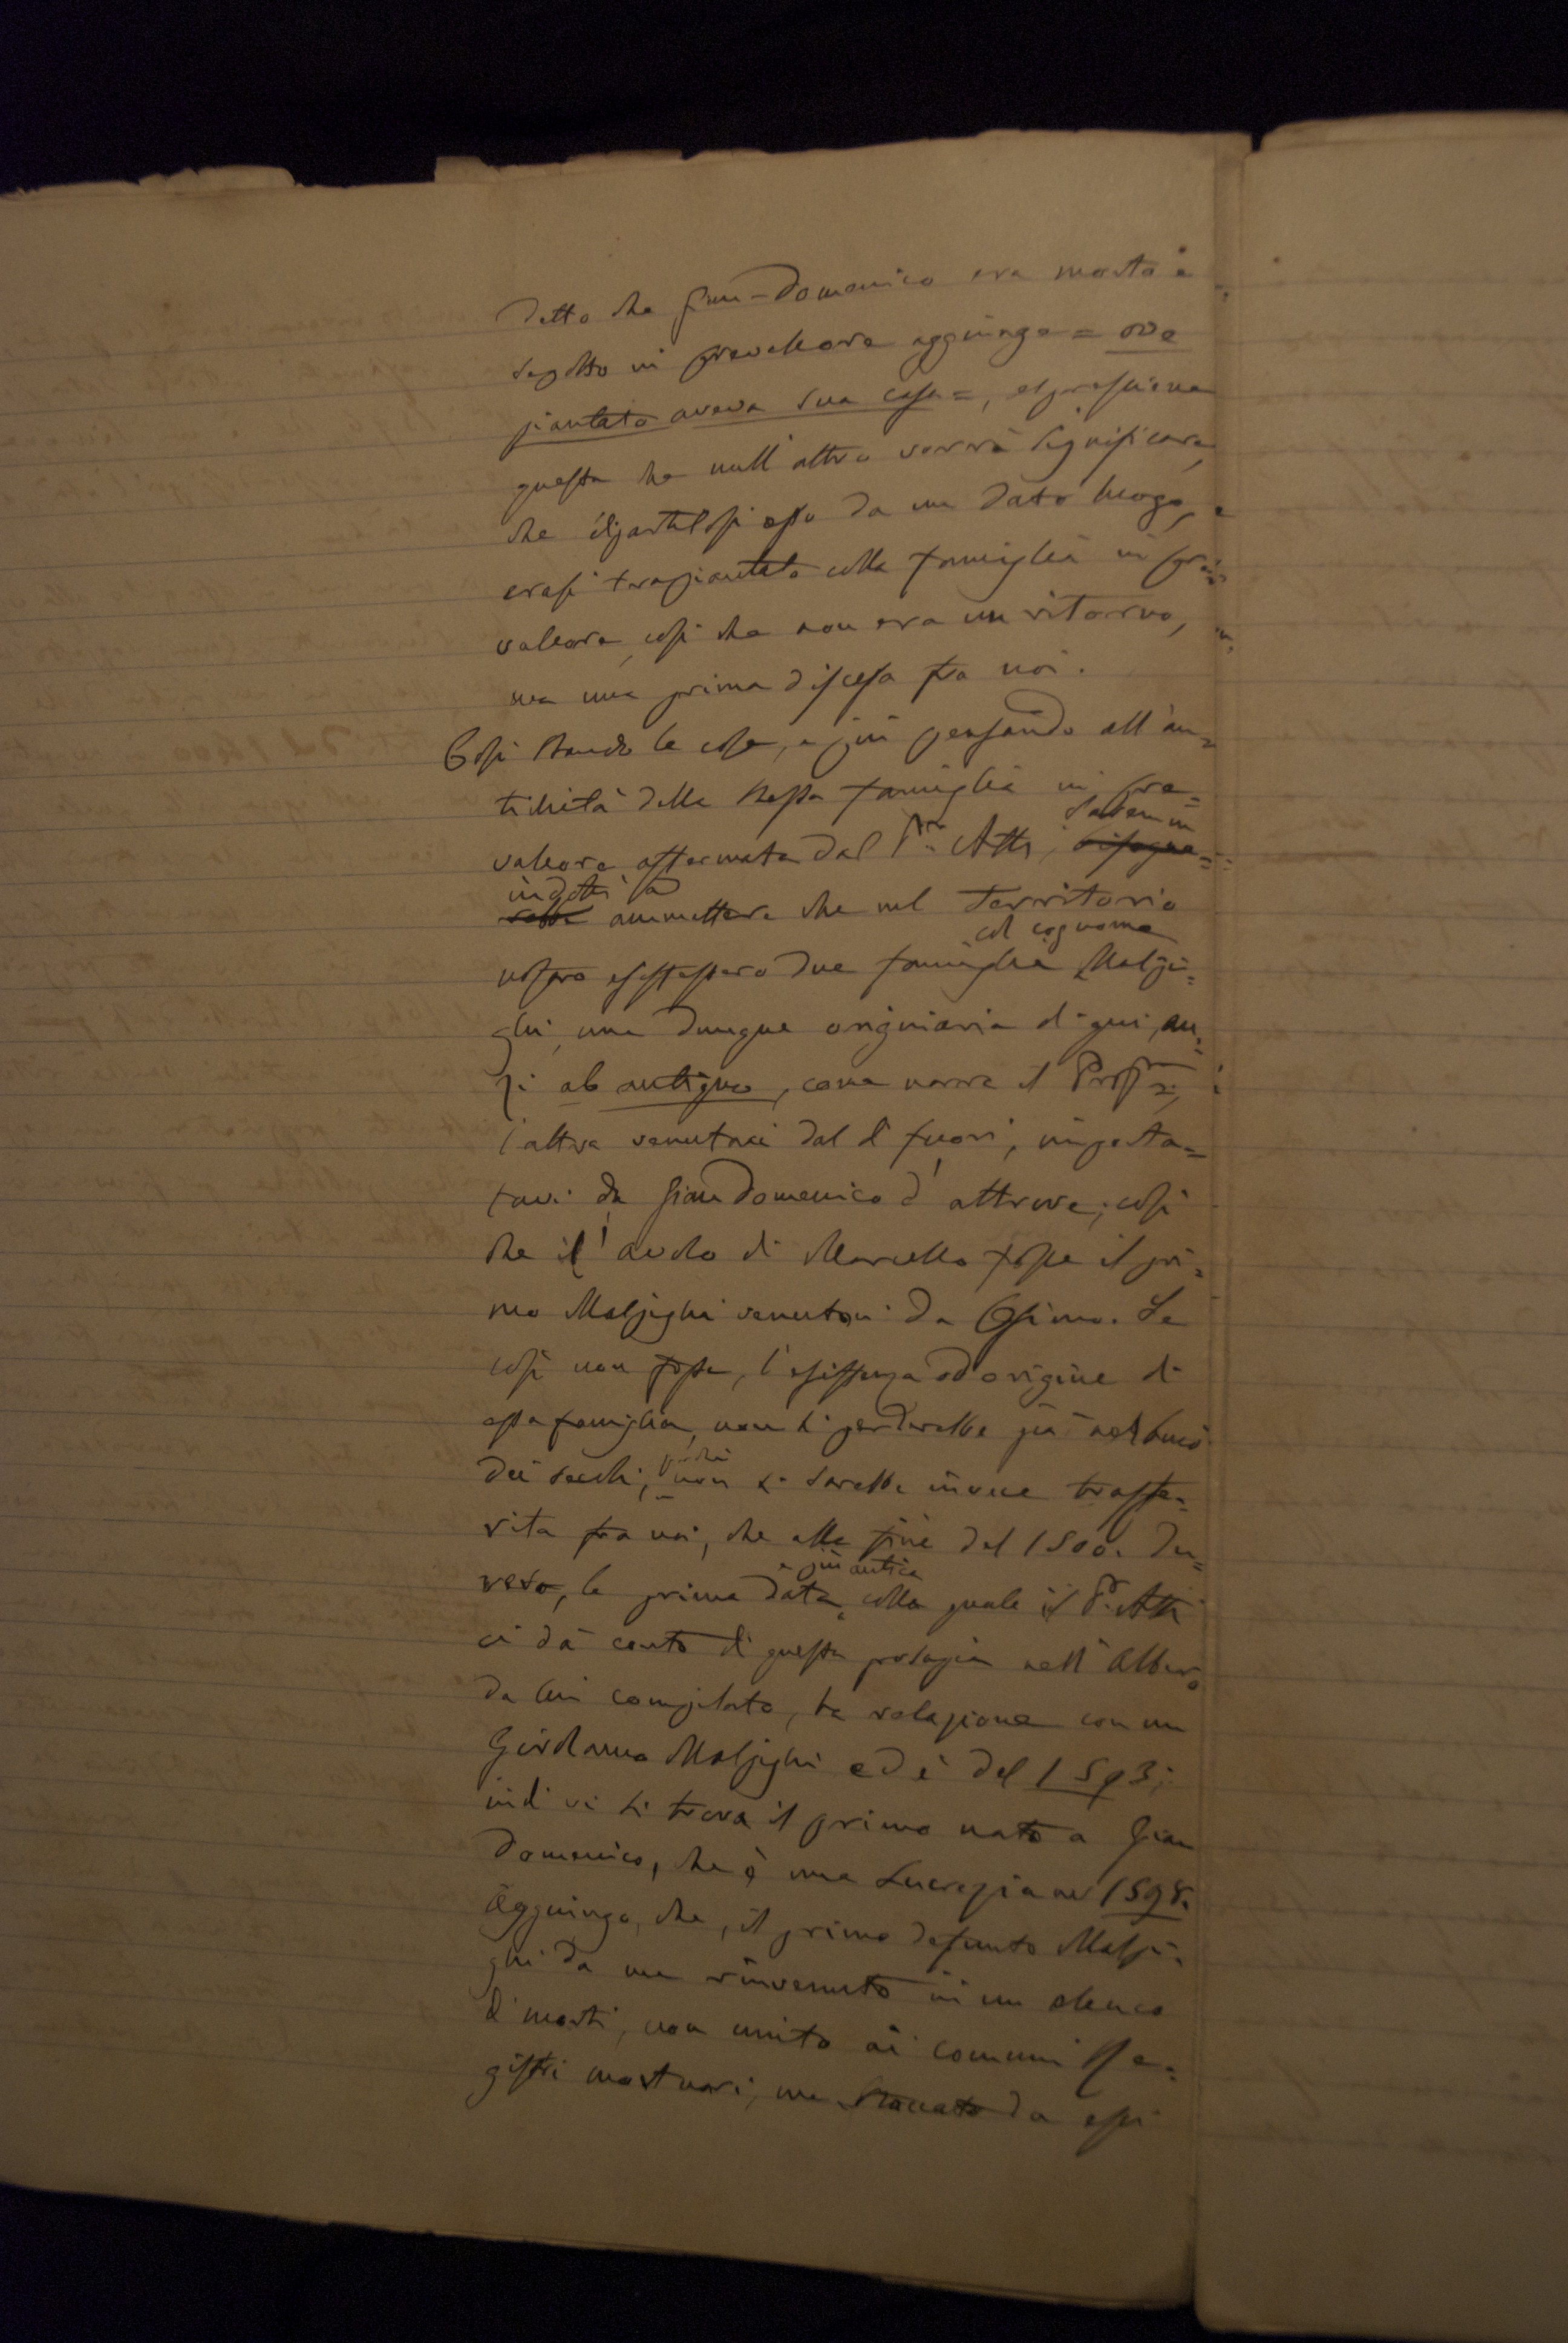 detto che Gian-Domenico era morto e
sepolto in Crevalcore aggiunge = ove
piantato aveva sua casa =, espressione
questa che null'altro vorrà significare,
che dipartitosi esso da un dato luogo, e
erasi trapiantato colla famiglia in Cre=
valcore, così che non era un ritorno,
ma una prima discesa fra noi.
Così stando le cose, e più pensando all'an=
tichità della stessa famiglia in Cre=
saremm
valcore affermata dal Pr. Atti, bisogne=
indotti a
rebbe ammettere che nel territorio
col cognome
nostro esistessero due famiglie Malpi=
ghi, una dunque originaria di qui, an=
zi ab antiquo, come narra il Profr.,
l'altra venutaci dal di fuori, importa=
tavi da Gian Domenico d'altrove; così
che l'avolo di Marcello fosse il pri=
mo Malpighi venutovi da Osimo. Se
così non fosse, l'esistenza od origine di
essa famiglia, non si perderebbe già nel buio
perché
dei secoli, non si sarebbe invece trasfe=
rita fra noi, che alla fine del 1500. Du=
e più antica
reso, la prima data colla quale il Pr. Atti
ci dà conto di questa prosapia nell'Albero
da lui compilato, ha relazione con un
Girolamo Malpighi ed è del 1593;
indi vi si trova il primo nato a Gian
Domenico, che è una Lucrezia nel 1598.
Aggiungo, che, il primo defunto Malpi=
ghi da me rinvenuto in un elenco
di morti, non unito ai comuni Re=
gistri mortuari, ma staccato da essi